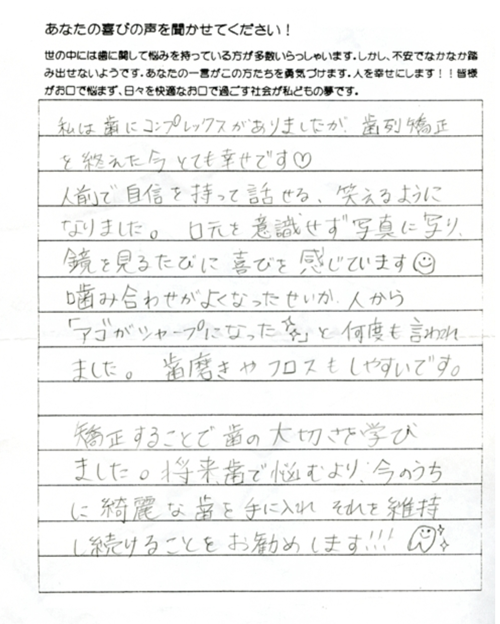 あなたの喜びの声を聞かせてください！
世の中には歯に関して悩みを持っている方が多数いらっしゃいます。しかし、不安でなかなか踏
み出せないようです。あなたの一言がこの方たちを勇気づけます。人を幸せにします！！皆様
がお口で悩まず、日々を快適なお口で過ごす社会が私どもの夢です。
私は歯にコンプレックスがありましたが、歯列矯正
を終えた今とても幸せです♡
人前で自信を持って話せる、笑えるように
なりました。口元を意識せず写真に写り、
鏡を見るたびに喜びを感じています☺
噛み合わせがよくなったせいか、人から
「アゴがシャープになった✨」と何度も言われ
ました。歯磨きやフロスもしやすいです。
矯正することで歯の大切さを学び
ました。将来歯で悩むより、今のうち
に綺麗な歯を手に入れ それを維持
し続けることをお勧めします!!!